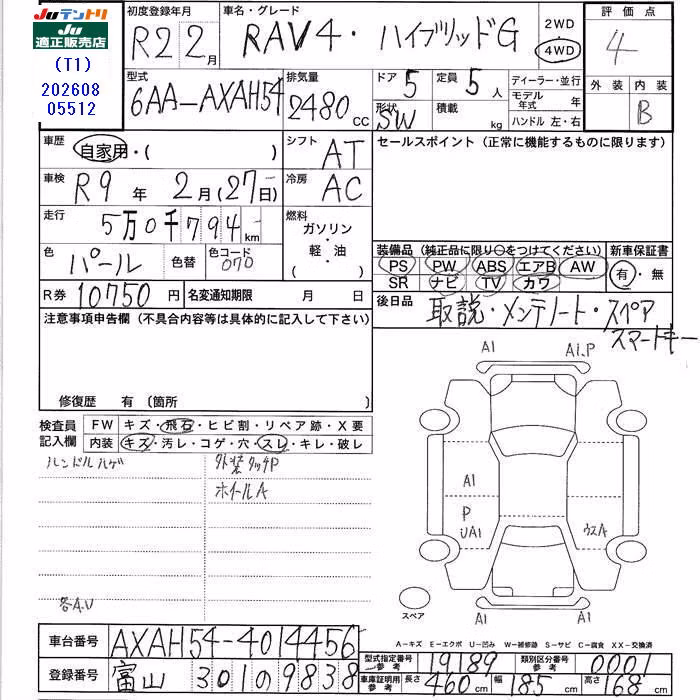 JUテントリ
JU
適正販売店
(T1)
202608
05512
初度登録年月
R2 2月
車名・グレード
RAV4・ハイブリッドG
2WD
4WD
評価点
4
型式
6AA-AXAH54
排気量
2480 cc
ドア 5
定員 5 人
形状
SW
積載 kg
ディーラー・並行
モデル年式 年
ハンドル 左・右
外装 内装
B
車歴
自家用・( )
シフト
AT
セールスポイント (正常に機能するものに限ります)
車検
R9年 2月(27日)
冷房
AC
走行
5万0千794km
燃料
ガソリン
・
軽・油
( )
色
パール
色替
色コード
070
装備品 (純正品に限り○をつけてください)
新車保証書
PS PW ABS エアB AW
SR ナビ TV カワ
有・無
R券 10750円
名変通知期限 月 日
後日品
取説・メンテノート・スペア
スマートキー
注意事項申告欄 (不具合内容等は具体的に記入して下さい)
修復歴 有 (箇所 )
検査員
記入欄
FW キズ・飛石・ヒビ割・リペア跡・X要
内装 キズ・汚レ・コゲ・穴・スレ・キレ・破レ
ハンドルハゲ
外装タッチP
ホイールA
各A.U
A1
A1.P
A1
P
UA1
ウスA
A1
A1
スペア
A-キズ E-エクボ U-凹み W-補修跡 S-サビ C-腐食 XX-交換済
車台番号
AXAH54-4014456
登録番号
富山 301の9838
型式指定番号
参考
19189
類別区分番号
参考
0001
車庫証明用
参考
長さ 460cm
幅 185cm
高さ 168cm